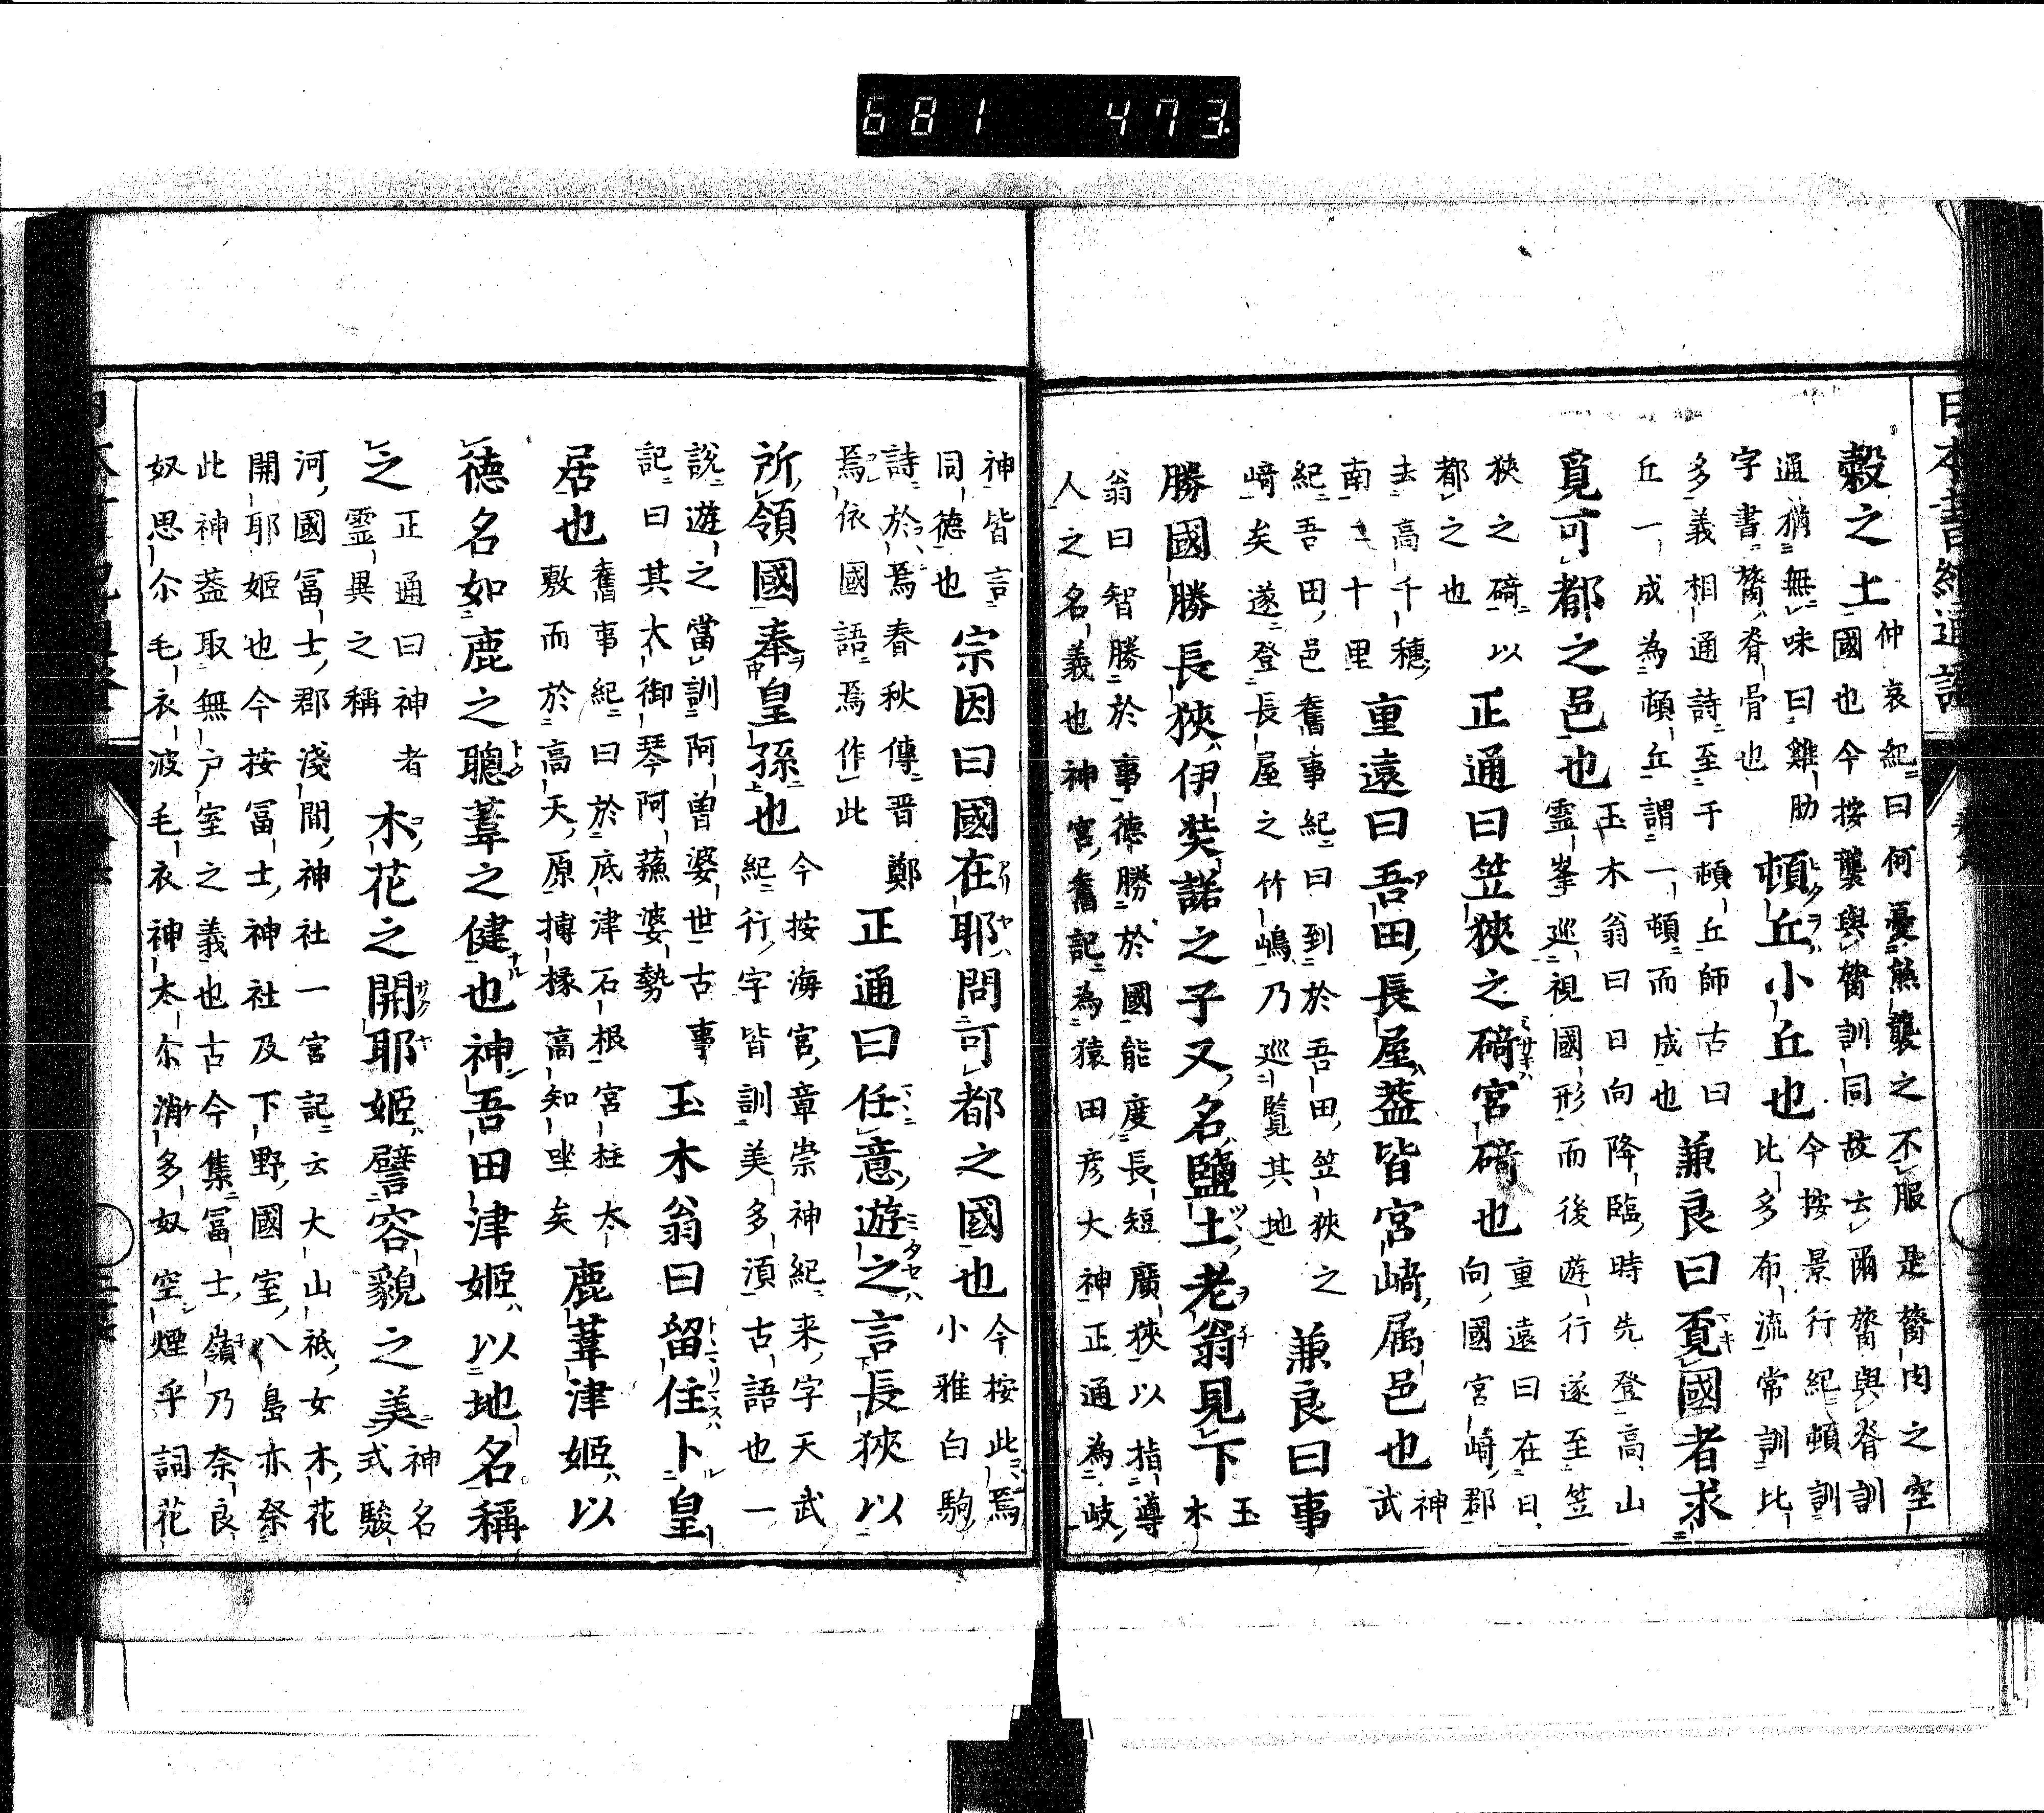 681 473
日本書紀通證
穀之土仲哀紀曰何憂熊襲之不服是膂肉之空
國也今按襲與膂訓同故云爾膂與脊訓
通猶無味曰雞肋 頓丘小丘也今按景行紀頓訓
比多布流常訓比
字書膂脊骨也
多義相通詩至于頓丘師古曰
丘一成為頓丘謂一頓而成也 兼良曰覓國者求
覓可都之邑也玉木翁曰日向降臨時先登高山
霊峯巡視國形而後遊行遂至笠
狹之碕以
都之也 正通曰笠狹之碕宮碕也重遠曰在日
向國宮崎郡
去高千穗
南二十里 重遠曰吾田長屋蓋皆宮崎属邑也神
武
紀吾田邑舊事紀曰到於吾田笠狹之
﨑矣遂登長屋之竹嶋乃巡覽其地 兼良曰事
勝國勝長狹伊奘諾之子又名鹽土老翁見下玉
木
翁曰智勝於事德勝於國能度長短廣狹以指導
人之名義也神宮舊記為猿田彦大神正通為岐
神皆言
同德也 宗因曰國在耶問可都之國也今按此焉
小雅白駒
詩於焉春秋傳晋鄭
焉依國語焉作此 正通曰任意遊之言長狹以
所領國奉皇孫也今按海宮章崇神紀来字天武
紀行字皆訓美多湏古語也一
說遊之當訓阿曽婆世古事
記曰其太御琴阿蘓婆勢 玉木翁曰留住卜皇
居也舊事紀曰於底津石根宮柱太
敷而於高天原摶椽高知㘴矣 鹿葦津姬以
德名如鹿之聰葦之健也神吾田津姬以地名稱
之正通曰神者
霊異之稱 木花之開耶姬譬容貌之美神名
式駿
河國冨士郡淺間神社一宮記云大山祇女木花
開耶姬也今按冨士神社及下野國室八島亦祭
此神蓋取無戶室之義也古今集冨士嶺乃奈良
奴思尓毛衣波毛衣神太尓消多奴空煙乎詞花